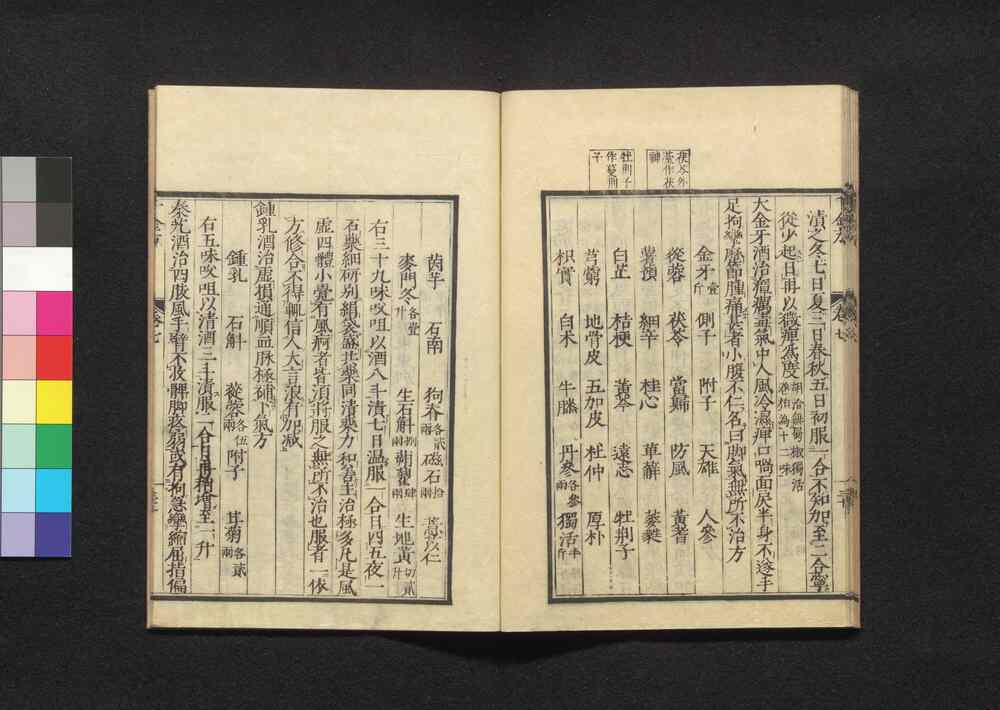 茯苓外
臺作茯
神
牡荆子
作蔓荆
子
漬之冬七日夏三日春秋五日初服一合不知加至二合寧
從少起日再以微痺爲度胡洽無蜀椒獨活
狼狽爲十二味
大金牙酒治瘴癘毒氣中人風冷濕痺口喎面戾半身不遂手
足拘攣歷節腫痛甚者小腹不仁名曰脚氣無所不治方
金牙壹斤 側子 附子 天雄 人參
蓯蓉 茯苓 當歸 防風 黃耆
薯蕷 細辛 桂心 萆薢 葳蕤
白芷 桔梗 黃芩 遠志 牡荆子
芎藭 地骨皮 五加皮 杜仲 厚朴
枳實 白朮 牛膝 丹參各參兩 獨活半斤
茵芋 石南 狗脊各貳兩 磁石拾兩 薏苡仁
麥門冬各壹升 生石斛捌兩 蒴藋肆兩 生地黃切貳升
右三十九味㕮咀以酒八斗漬七日温服一合日四五夜一
石藥細研别絹袋盛共藥同漬藥力和善主治極多凡是風
虛四體小覺有風痾者皆須將服之無所不治也服者一依
方修合不得輙信人大言浪有加減
鍾乳酒治虛損通順血脉極補下氣方
鍾乳 石斛 蓯蓉各伍兩 附子 甘菊各貳兩
右五味㕮咀以清酒三斗漬服二合日再稍增至一升
秦艽酒治四肢風手臂不收髀脚疼弱或有拘急攣縮屈指偏